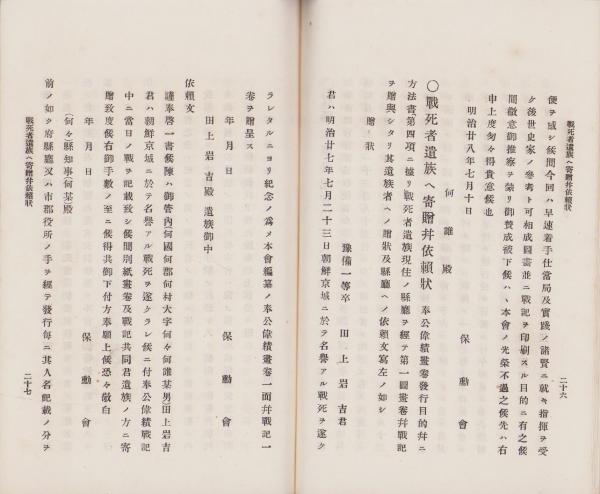 戰死者遺族ヘ寄贈幷依賴狀
二十六
便ヲ感シ候間今回ハ早速着手仕當局及實踐ノ諸賢ニ就キ指揮ヲ受
ケ後世史家ノ參考ト可相成圖畫並ニ戰記ヲ印刷スル目的ニ有之候
間微意御推察ヲ蒙リ御賛成被下候ハヽ本會ノ光榮不過之候先ハ右
申上度匆々得貴意候也
明治廿八年七月十日
保勳會
何誰殿
〇戰死者遺族ヘ寄贈幷依賴狀
奉公偉績畫卷發行目的幷ニ
方法書第四項ニ據リ戰死者遺族現住ノ縣廳ヲ經テ第一圖畫卷幷戰記
ヲ贈與シタリ其遺族者ヘノ贈狀及縣廳ヘノ依賴文寫左ノ如シ
贈狀
豫備一等卒 田上岩吉君
君ハ明治廿七年七月二十三日朝鮮京城ニ於テ名譽アル戰死ヲ遂ケ
ラレタルニヨリ紀念ノ爲メ本會編纂ノ奉公偉績畫卷一面幷戰記一
卷ヲ贈呈ス
年月日
保勳會
田上岩吉殿 遺族御中
依賴文
謹奉啓一書候陳ハ御管內何國何郡何村大字何々何誰某男田上岩吉
君ハ朝鮮京城ニ於テ名譽アル戰死ヲ遂クラレ候ニ付奉公偉績戰記
中ニ當日ノ戰ヲ記載致シ候間別紙畫卷及戰記共同君遺族ノ方ニ寄
贈致度候右御手數ノ至ニ候得共御下付方奉願上候恐々敬白
年月日
保勳會
何々縣知事何某殿
前ノ如ク府縣廳又ハ市郡役所ノ手ヲ經テ發行每ニ其人名記載ノ分ヲ
戰死者遺族ヘ寄贈幷依賴狀
二十七